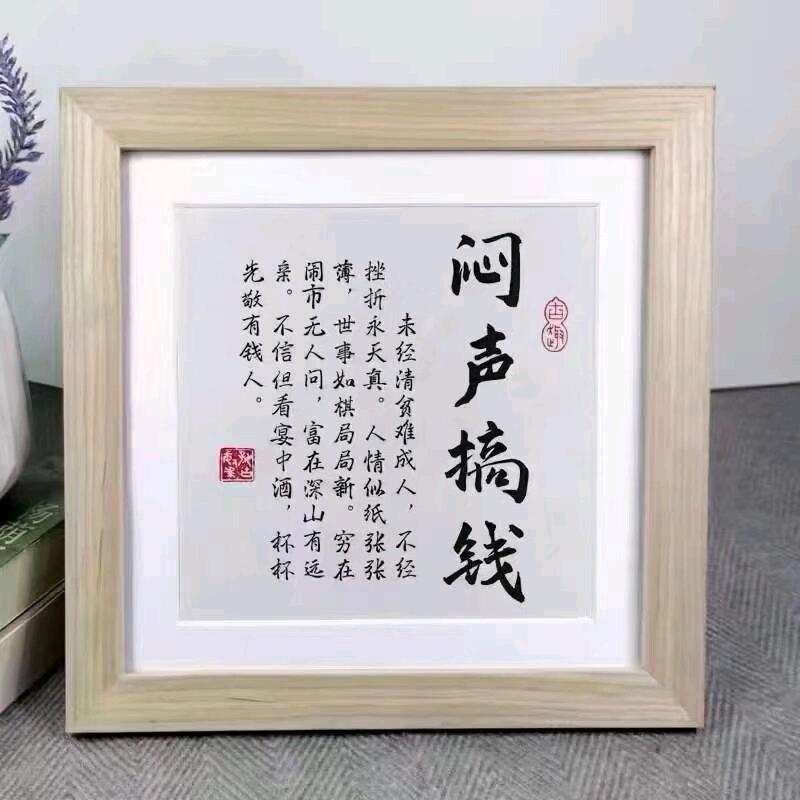 闷声搞钱
未经清贫难成人，不经
挫折永天真。人情似纸张张
薄，世事如棋局局新。穷在
闹市无人问，富在深山有远
亲。不信但看宴中酒，杯杯
先敬有钱人。